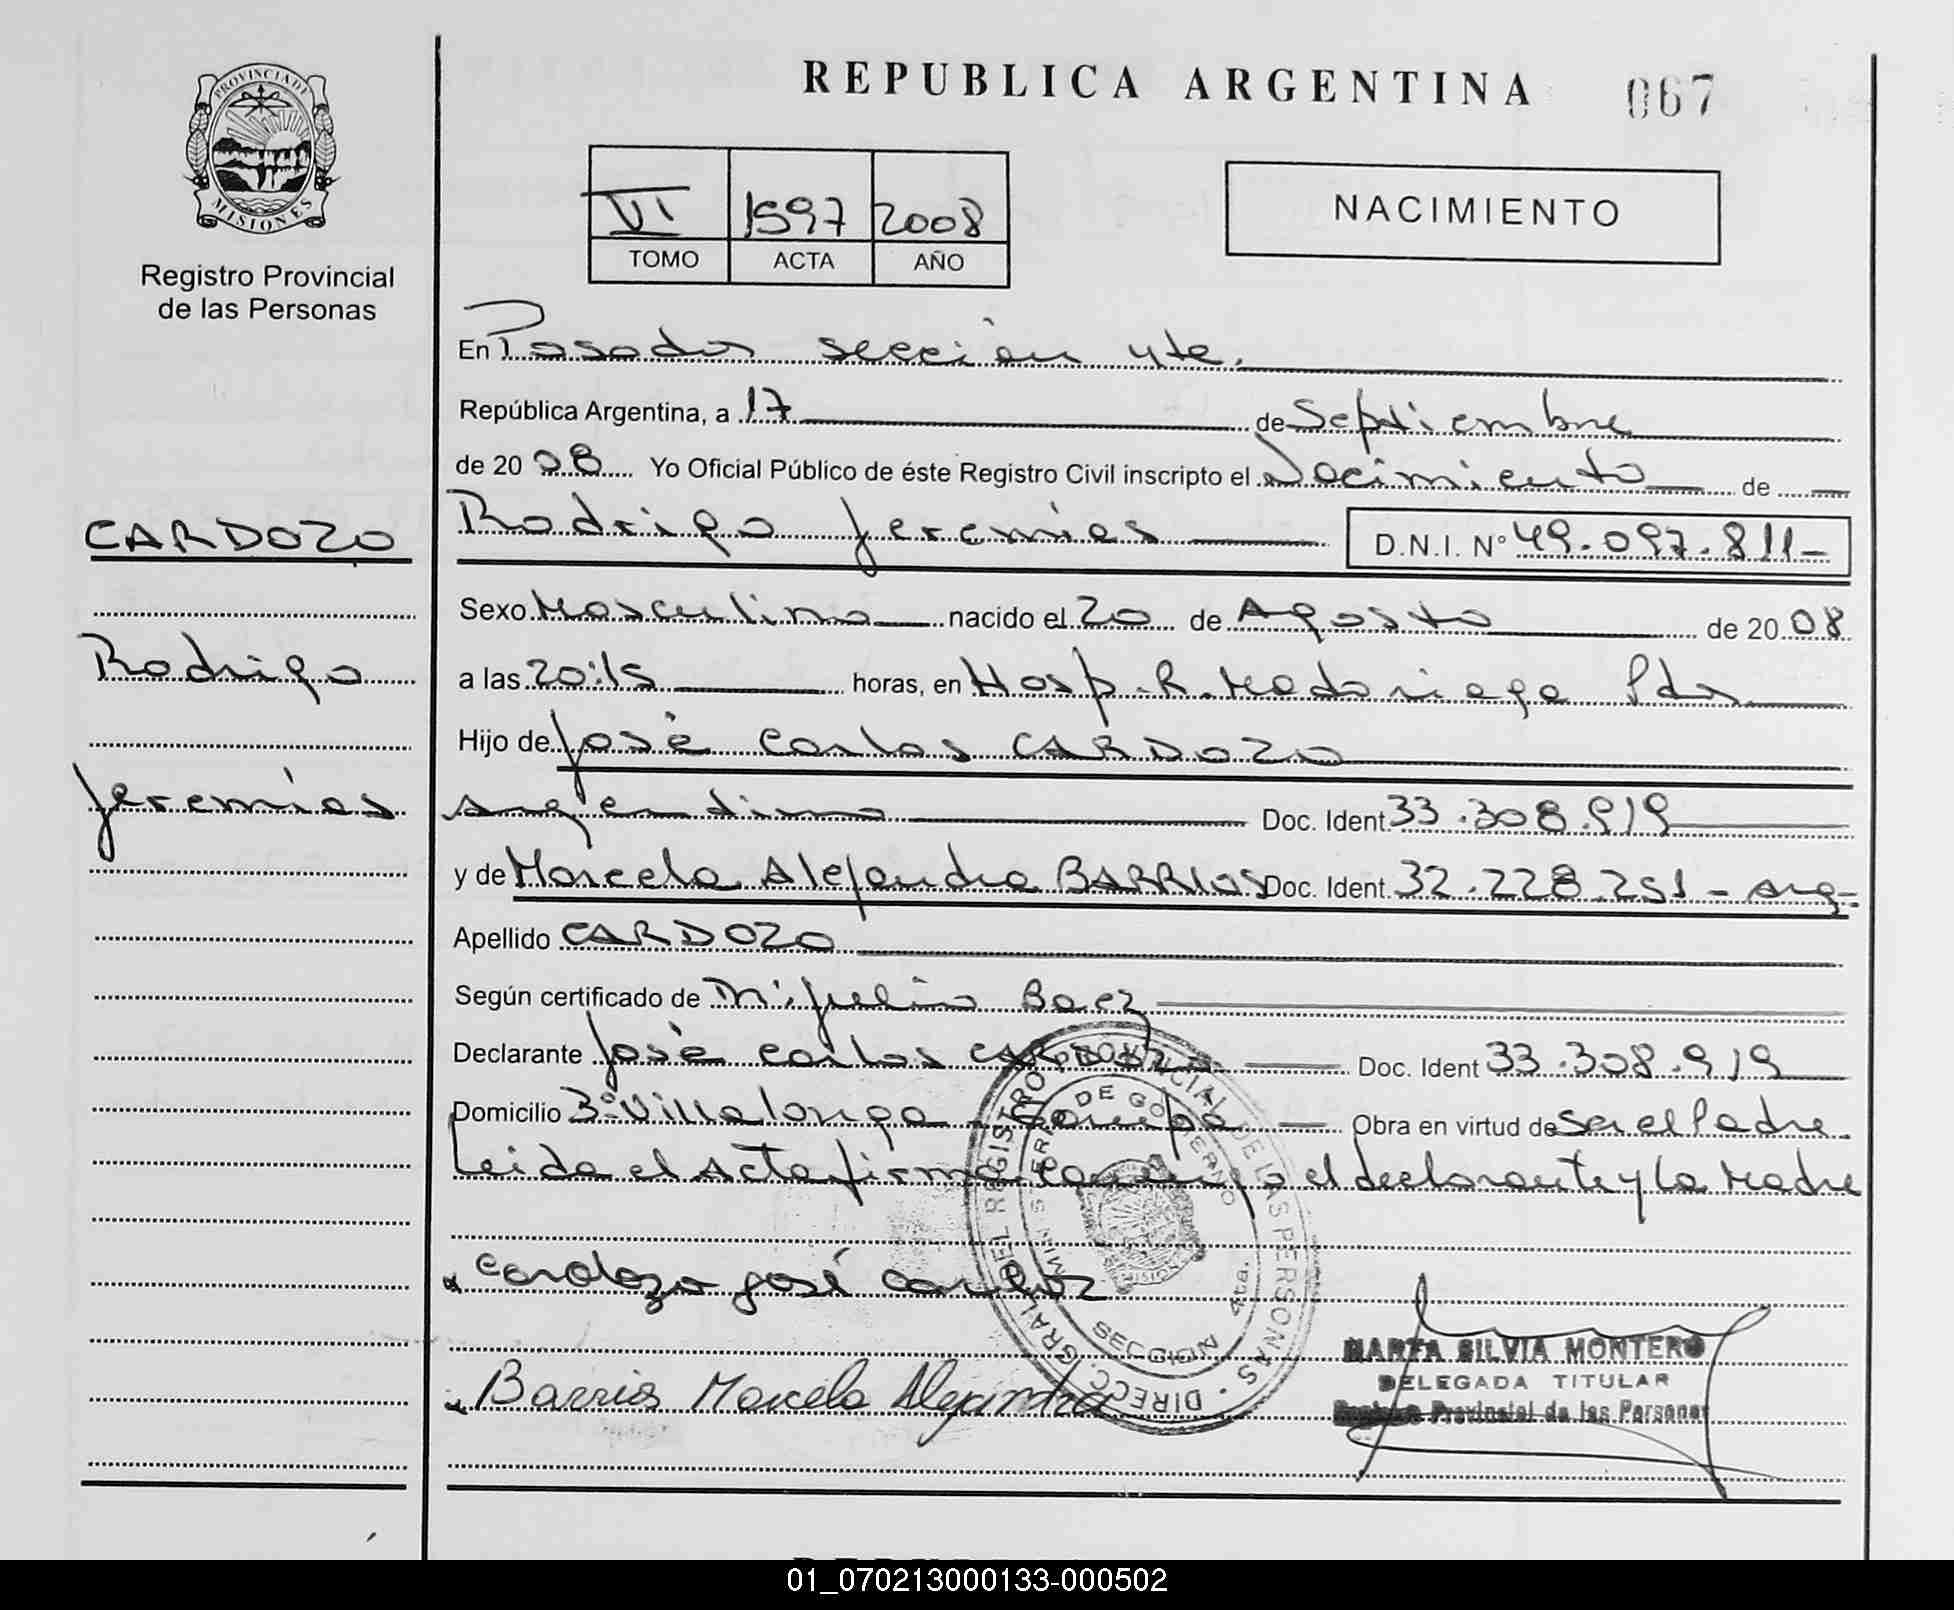 REPUBLICA ARGENTINA 067
PROVINCIA DE MISIONES
Registro Provincial
de las Personas
VI 1597 2008
TOMO ACTA AÑO
NACIMIENTO
En Posadas sección 4ta.
República Argentina, a 17 de Septiembre
de 2008 Yo Oficial Público de éste Registro Civil inscripto el Nacimiento de
CARDOZO
Rodrigo Jeremías
Rodrigo Jeremías D.N.I. Nº 49.097.811-
Sexo Masculino nacido el 20 de Agosto de 2008
a las 20:15 horas, en Hosp. R. Madariaga Pdas
Hijo de José Carlos CARDOZO
argentino Doc. Ident. 33.308.919
y de Marcela Alejandra BARRIOS Doc. Ident. 32.228.251 - arg-
Apellido CARDOZO
Según certificado de Baez
Declarante José Carlos CARDOZO Doc. Ident 33.308.919
Domicilio 3º Villalonga Garupá Obra en virtud de ser el Padre
Leida el Acta firma conmigo el declarante y la Madre
Cardozo José Carlos
Barrios Marcela Alejandra
DIRECC. GRAL. DEL REGISTRO PROVINCIAL DE LAS PERSONAS
MINISTERIO DE GOBIERNO
MISIONES
SECCION 4ta.
MARTA SILVIA MONTERO
DELEGADA TITULAR
Registro Provincial de las Personas
01_070213000133-000502